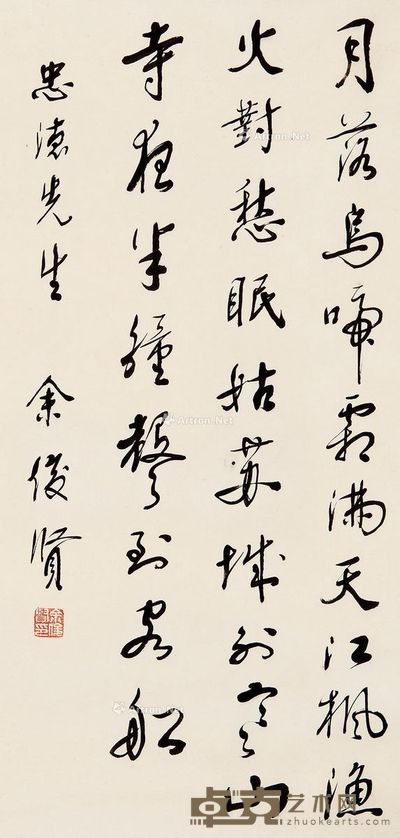 月落烏啼霜滿天江楓漁
火對愁眠姑蘇城外寒山
寺夜半鐘聲到客船
忠德先生 余俊賢
余俊賢印
Artron.Net
卓克艺术网
zhuokearts.com